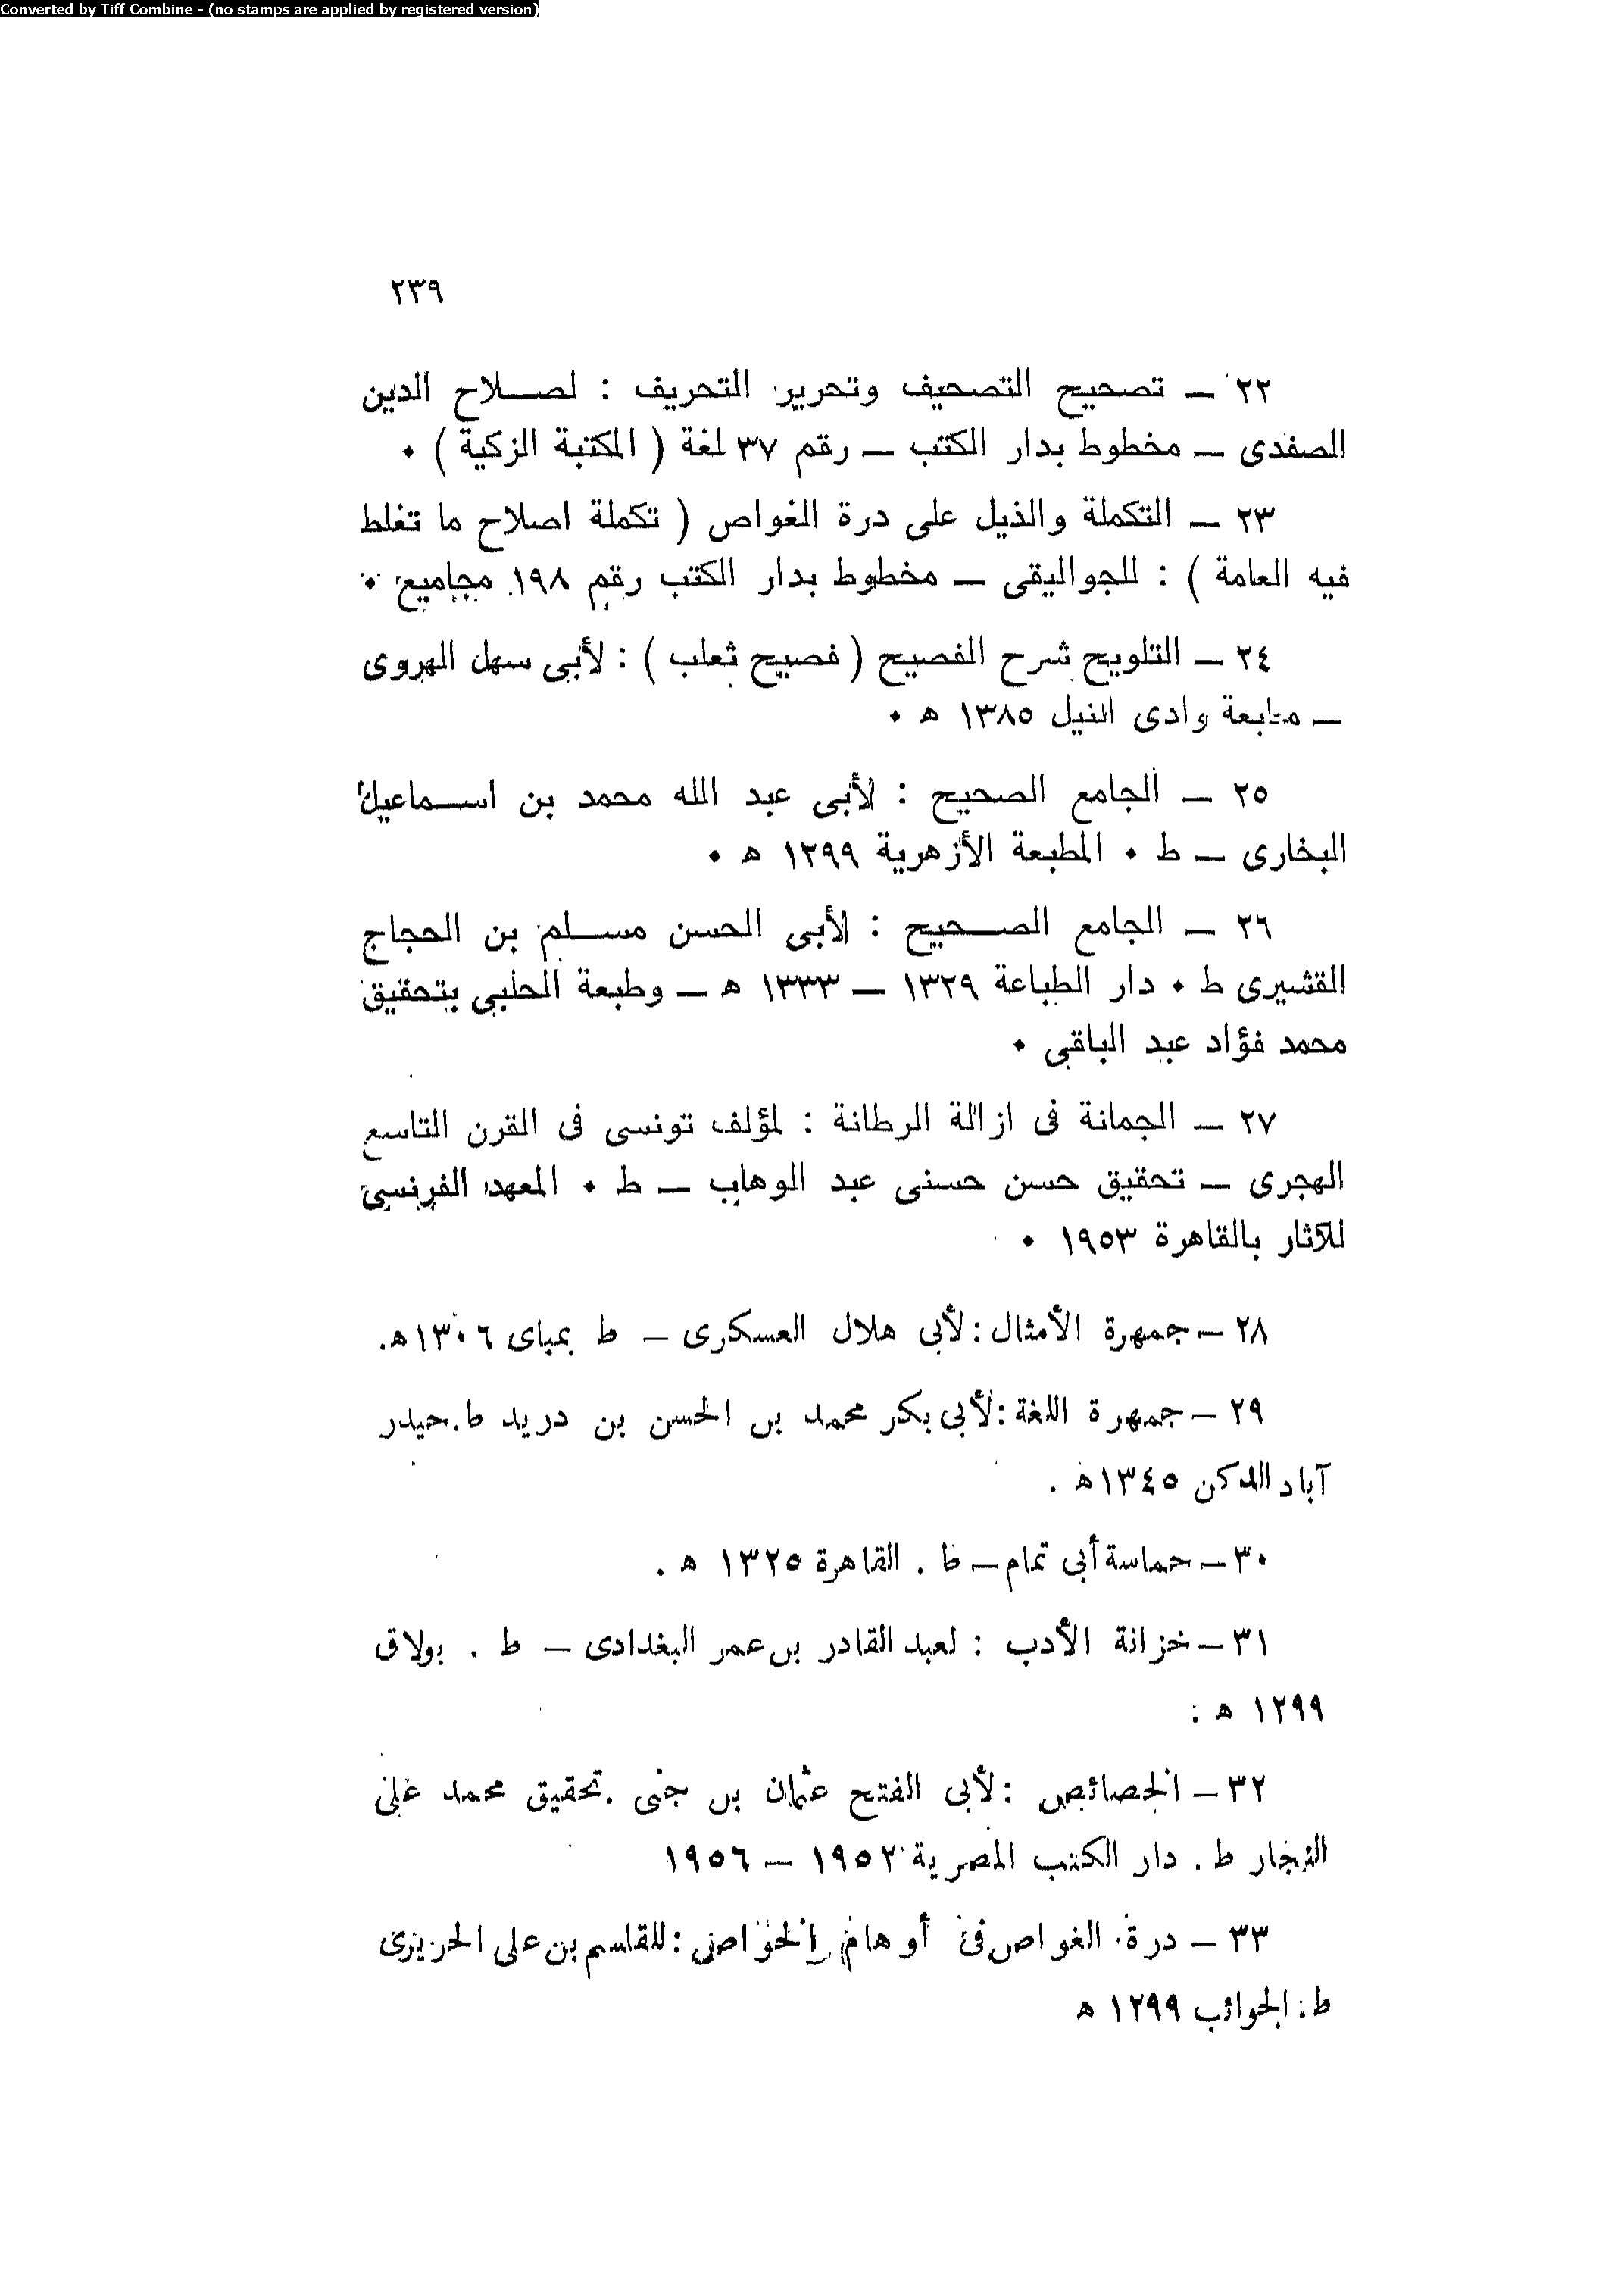 Converted by Tiff Combine - (no stamps are applied by registered version)
٢٣٩
٢٢ — تصحيح التصحيف وتحرير التحريف : لصلاح الدين
الصفدى — مخطوط بدار الكتب — رقم ٣٧ لغة ( المكتبة الزكية ) ٠
٢٣ — التكملة والذيل على درة الغواص ( تكملة اصلاح ما تغلط
فيه العامة ) : للجواليقى — مخطوط بدار الكتب رقم ١٩٨ مجاميع ٠
٢٤ — التلويح شرح الفصيح ( فصيح ثعلب ) : لأبى سهل الهروى
— مطبعة وادى النيل ١٣٨٥ ه ٠
٢٥ — الجامع الصحيح : لأبى عبد الله محمد بن اسماعيل
البخارى — ط ٠ المطبعة الأزهرية ١٢٩٩ ه ٠
٢٦ — الجامع الصحيح : لأبى الحسن مسلم بن الحجاج
القشيرى ط ٠ دار الطباعة ١٣٢٩ — ١٣٣٣ ه — وطبعة الحلبى بتحقيق
محمد فؤاد عبد الباقى ٠
٢٧ — الجمانة فى ازالة الرطانة : لمؤلف تونسى فى القرن التاسع
الهجرى — تحقيق حسن حسنى عبد الوهاب — ط ٠ المعهد الفرنسى
للآثار بالقاهرة ١٩٥٣ ٠
٢٨ — جمهرة الأمثال : لأبى هلال العسكرى — ط بمباى ١٣٠٦ه.
٢٩ — جمهرة اللغة : لأبى بكر محمد بن الحسن بن دريد ط. حيدر
آباد الدكن ١٣٤٥ه .
٣٠ — حماسة أبى تمام — ط . القاهرة ١٣٢٥ ه .
٣١ — خزانة الأدب : لعبد القادر بن عمر البغدادى — ط . بولاق
١٢٩٩ ه :
٣٢ — الخصائص : لأبى الفتح عثمان بن جنى . تحقيق محمد على
النجار ط . دار الكتب المصرية ١٩٥٢ — ١٩٥٦
٣٣ — درة الغواص فى أوهام الخواص : للقاسم بن على الحريرى
ط : الجوائب ١٢٩٩ ه